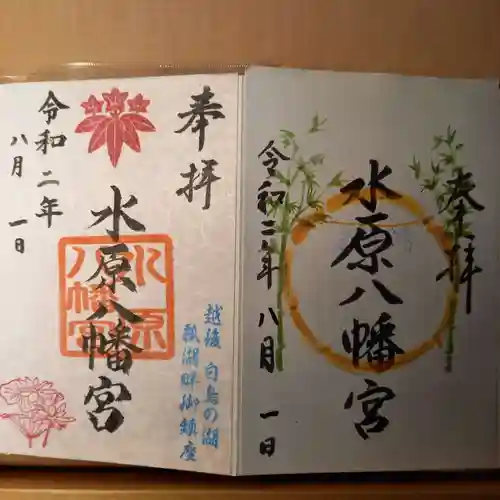 奉拝
水原八幡宮
水原
八幡宮
令和二年
八月 一日
越後 白鳥の湖
瓢湖畔御鎮座
奉拝
水原八幡宮
令和二年 八月 一日